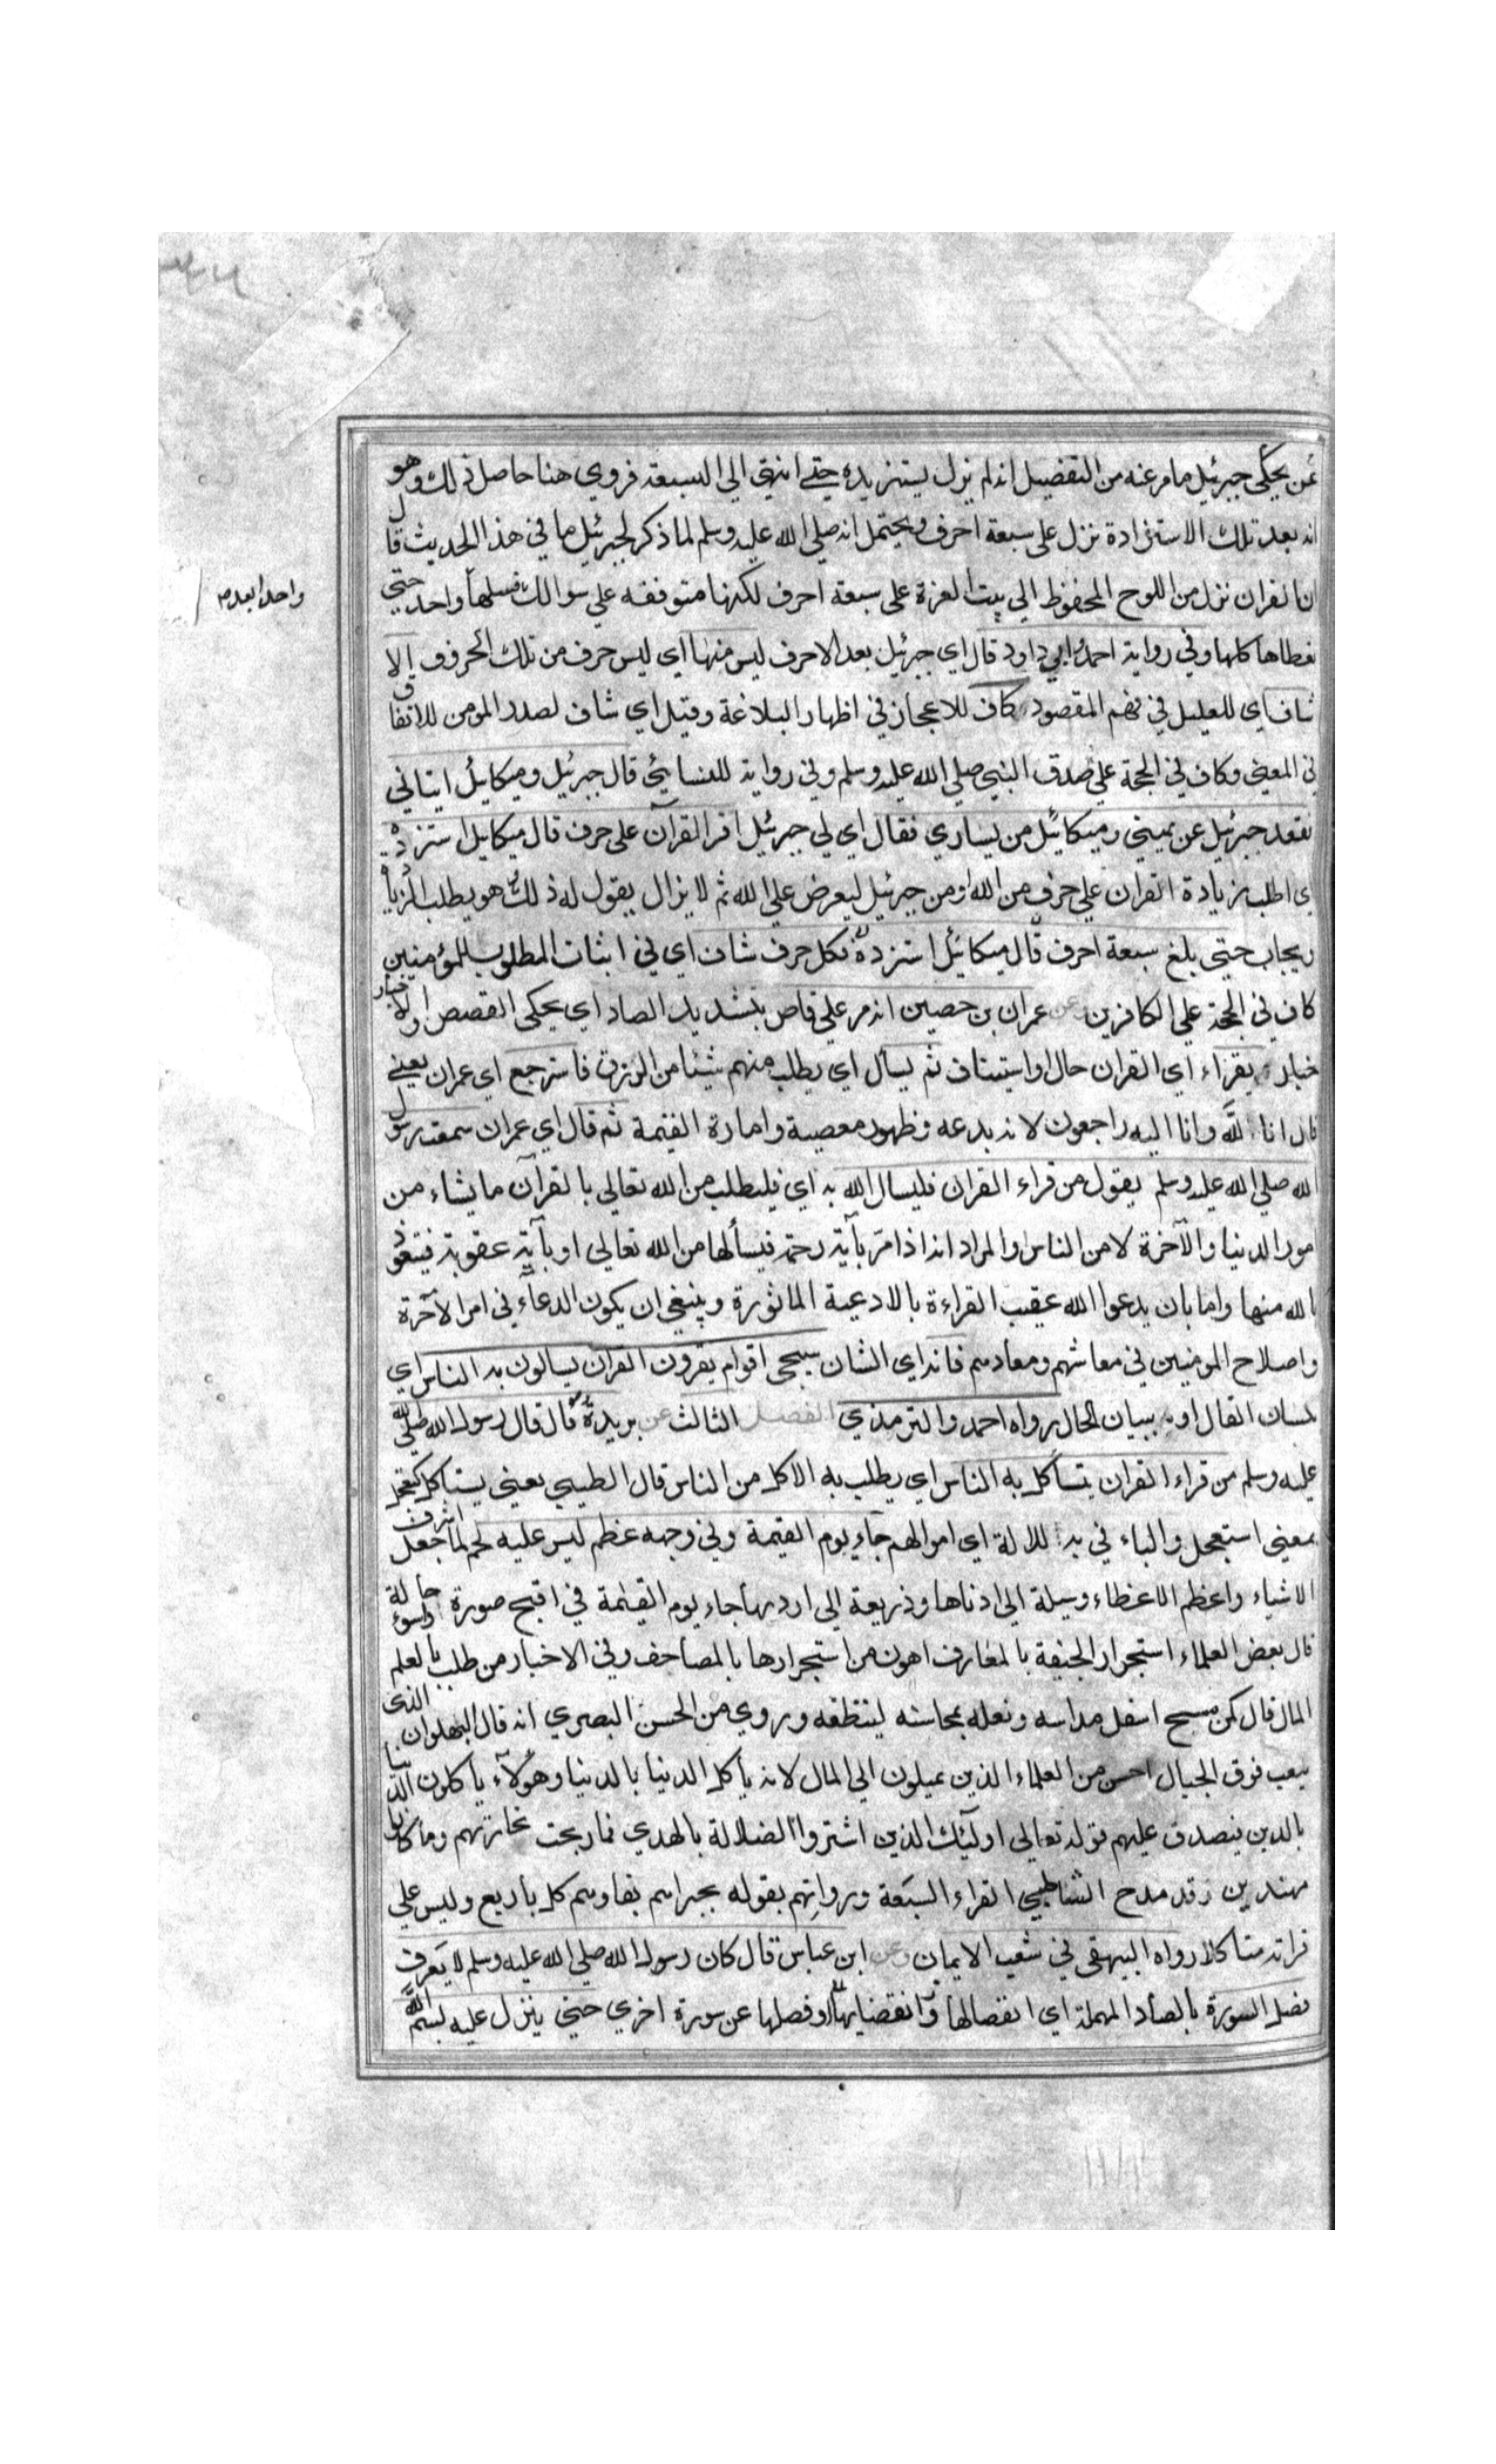 عن يحكى جبرئيل ما مر عنه من التفضيل انه لم يزل يستزيده حتى انتهى الى السبعة فروي هنا حاصل ذلك وهو
انه بعد تلك الاستزادة نزل على سبعة احرف ويحتمل انه صلي الله عليه وسلم لما ذكر لجبرئيل ما في هذا الحديث قال
ان القران نزل من اللوح المحفوظ الي بيت العزة على سبعة احرف لكنها متوقفه علي سوالك فسلها واحد حتي
واحدا بعدم
نعطاها كلها وفي رواية احمد وابي داود قال اي جبرئيل بعد الاحرف ليس منها اي ليس حرف من تلك الحروف الا
شاف اي للعليل في فهم المقصود كاف للاعجاز في اظهار البلاغة وقيل اي شاف لصدر المومن للاتفاق
في المعني وكاف في الحجة على صدق النبي صلي الله عليه وسلم وفي رواية للنسائي قال جبرئيل وميكائيل اتياني
فقعد جبرئيل عن يميني وميكائيل من يساري فقال اي لي جبرئيل اقرا القرآن على حرف قال ميكايل استزده
اي اطلب زيادة القران علي حرف من الله او من جبرئيل ليعرض على الله ثم لا يزال يقول له ذلك وهو يطلب الزيادة
ويجاب حتى بلغ سبعة احرف قال ميكائيل استزده فكل حرف شاف اي في اثبات المطلوب للمؤمنين
كاف في الحجة علي الكافرين عن عمران بن حصين انه مر علي قاص بتشديد الصاد اي يحكى القصص او الاخبار
خبار يقراء اي القران حال او استيناف ثم يسأل اي يطلب منهم شيئا من الرزق فاسترجع اي عمران يعني
قال انا لله وانا اليه راجعون لانه بدعه وظهور معصية وامارة القيمة ثم قال اي عمران سمعت رسول
الله صلي الله عليه وسلم يقول من قراء القران فليسال الله به اي فليطلب من الله تعالي بالقرآن ما يشاء من
مور الدنيا والآخرة لا من الناس والمراد انه اذا مر بآية رحمة فيسألها من الله تعالي او بآية عقوبة فيتعوذ
بالله منها واما بان يدعوا الله عقيب القراءة بالادعية الماثورة وينبغي ان يكون الدعاء في امر الآخرة
واصلاح المومنين في معاشهم ومعادهم فانه اي الشان سيجى اقوام يقرون القران يسالون به الناس اي
بلسان القال او ببيان الحال رواه احمد والترمذي الفصل الثالث عن بريدة قال قال رسول الله صلى الله
عليه وسلم من قراء القران يتسأكل به الناس اي يطلب به الاكل من الناس قال الطيبي يعني يستاكل كتعجل
بمعني استعجل والباء في به للالة اي اموالهم جاء يوم القيمة وفي وجهه عظم ليس عليه لحم لما جعل اشرف
الاشياء واعظم الاعظاء وسيلة الي ادناها وذريعة الى اردىها جاء يوم القيمة في اقبح صورة واسوء حالة
قال بعض العلماء استجرار الجيفة بالمعازف اهون من استجرارها بالمصاحف وفي الاخبار من طلب بالعلم
المال قال كمن مسح اسفل مداسه ونعله بمحاسنه لينظفه وروي من الحسن البصري انه قال البهلوان الذي
يلعب فوق الحبال احسن من العلماء الذين يميلون الى المال لانه يأكل الدنيا بالدنيا وهؤلاء ياكلون الدنيا
بالدين فيصدق عليهم قوله تعالى اولئك الذين اشتروا الضلالة بالهدي فما ربحت تجارتهم وما كانوا
مهتدين وقد مدح الشاطبي القراء السبعة ورواتهم بقوله تخيرهم نقادهم كل بارع وليس على
قرانه متاكلا رواه البيهقي في شعب الايمان وعن ابن عباس قال كان رسول الله صلي الله عليه وسلم لا يعرف
فصل السورة بالصاد المهملة اي انفصالها وانقضايها او فصلها عن سورة اخري حتي ينزل عليه بسم الله